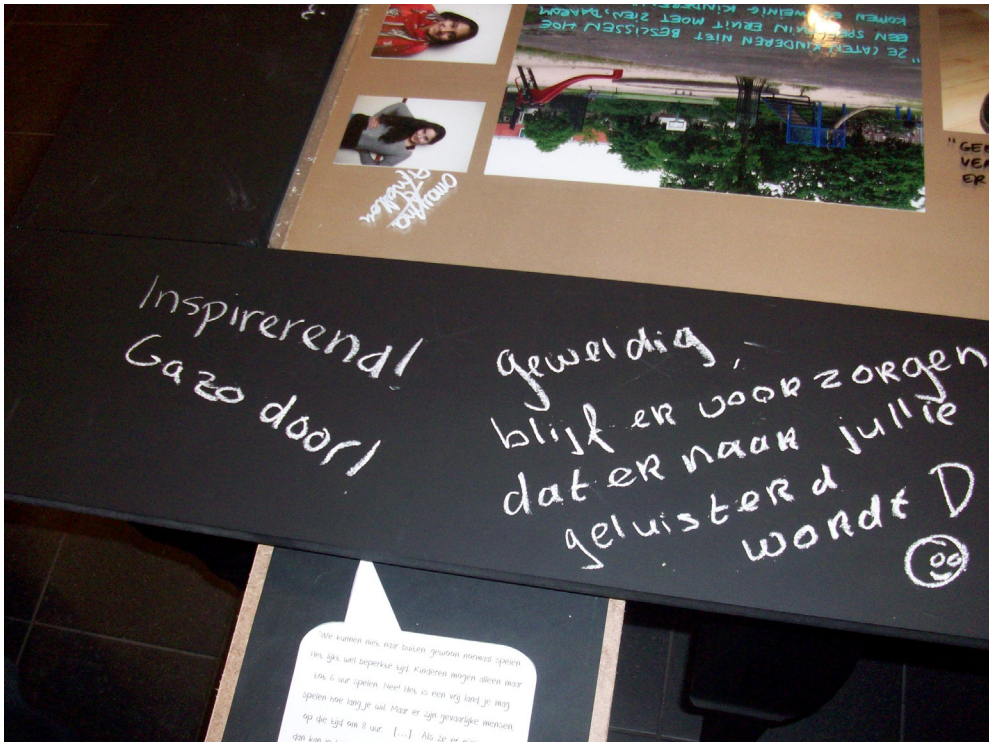 "ZE LATEN KINDEREN NIET BESLISSEN HOE
EEN SPEELTUIN ERUIT MOET ZIEN, DAAROM
KOMEN ER WEINIG KINDEREN
"GEE
VER
ER
Inspirerend!
Ga zo door!
geweldig,
blijf er voor zorgen
dat er naar jullie
geluisterd
wordt D
We kunnen niet naar buiten gewoon normaal spelen
Het lijkt wel beperkte tijd. Kinderen mogen alleen maar
tot 6 uur spelen. Nee! Het is een vrij land je mag
spelen hoe lang je wil. Maar er zijn gevaarlijke mensen
op die tijd om 8 uur. [...] Als ze er
dan kan